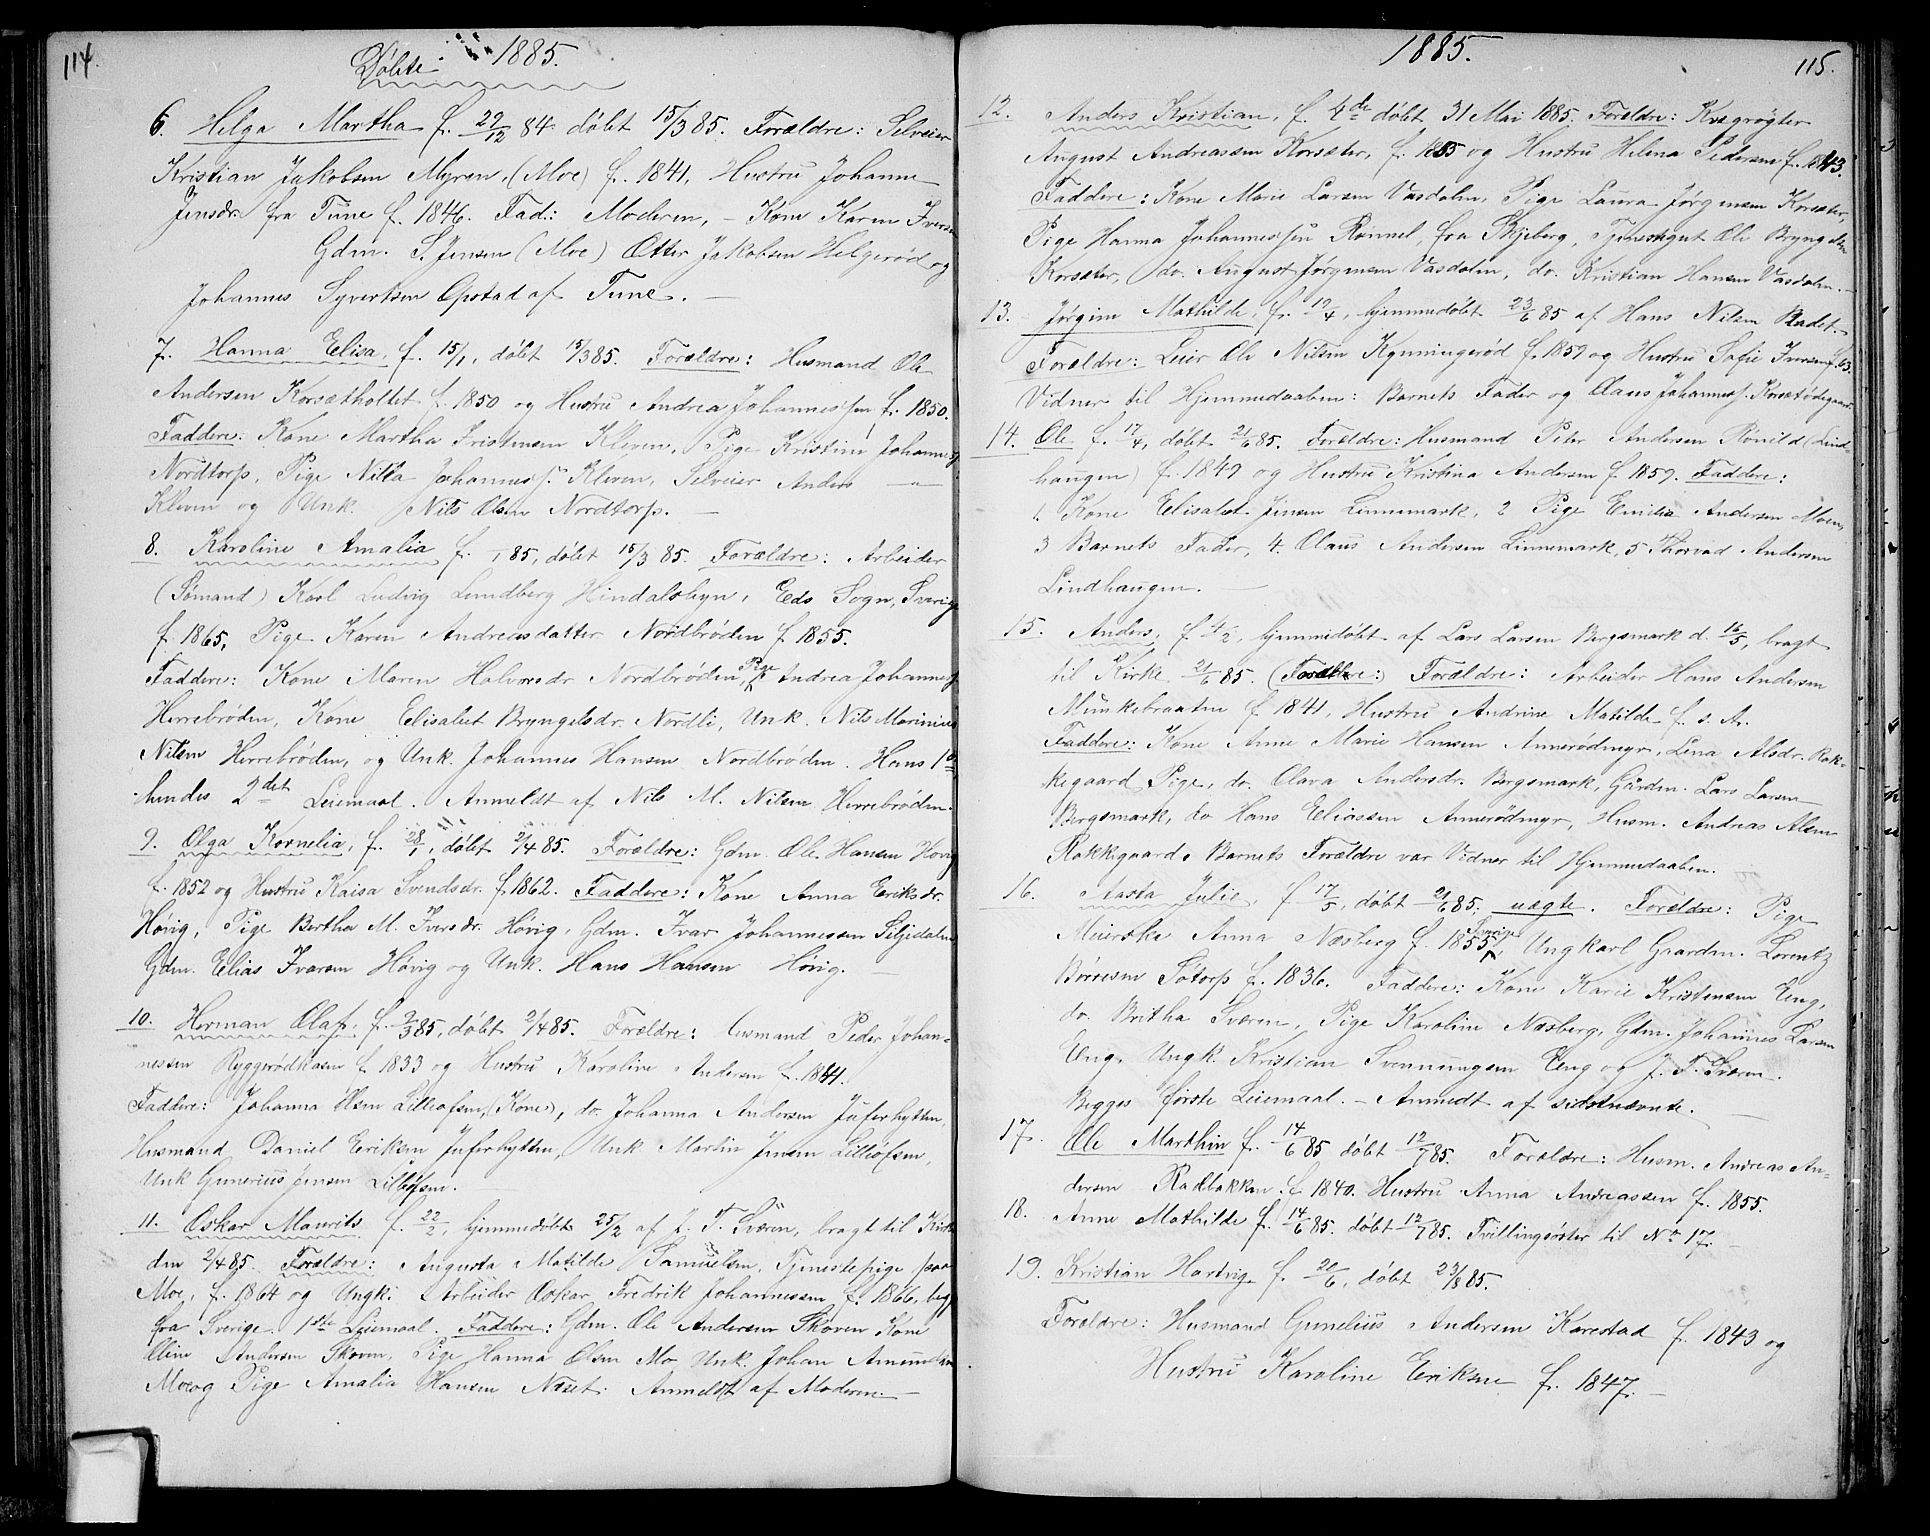 114.
Döbte 1885.
6. Helga Martha f. 29/12 84 döbt 15/3 85. Forældre: Selveier
Kristian Jakobsen Myren, (Moe) f. 1841, Hustru Johanne
Jensdr. fra Tune f. 1846. Fad.: Moderen, – Kone Karen Iversen
Gdm. S. Jensen (Moe) Otter Jakobsen Helgerød og
Johannes Syvertsen Opstad af Tune. –
7. Hanna Elisa, f. 15/1, döbt 15/3 85. Forældre: Husmand Ole
Andersen Korsætholtet f. 1850 og Hustru Andrea Johannessen, f. 1850.
Faddere: Kone Martha Kristensen Kleven, Pige Kristine Johannes
Nordtorp, Pige Nilla Johanness. Kleven, Selveier Anders –"–
Kleven og Unk. Nils Olsen Nordtorp. –
8. Karoline Amalia f. /1 85, döbt 15/3 85. Forældre: Arbeider
(Sömand) Karl Ludvig Lundberg Hindalsbyn, Eds Sogn, Sverige
f. 1865, Pige Karen Andreasdatter Nordbröden f. 1855.
Faddere: Kone Maren Halvorsdr Nordbröden, Pige Andrea Johanness
Herrebröden, Kone Elisabet Bryngelsdr. Nordli, Unk. Nils Marinius
Nilsen Herrebröden, og Unk. Johannes Hansen Nordbröden. Hans 1ste
hendes 2det Leiemaal. Anmeldt af Nils M. Nilsen Herrebröden.
9. Olga Kornelia, f. 28/1, döbt 2/4 85. Forældre: Gdm. Ole Hansen Hovig
f. 1852 og Hustru Kaisa Svendsdr. f. 1862. Faddere: Kone Anna Eriksdr.
Hövig, Pige Bertha M. Iversdr. Hövig, Gdm. Ivar Johannessen Siljedalen
Gdm. Elias Ivarsen Hövig og Unk. Hans Hansen Hövig. –
10. Herman Olaf, f. 2/3 85, döbt 2/4 85. Forældre: Husmand Peder Johan-
nessen Ryggerödkasen f. 1833 og Hustru Karoline Andersen f. 1841.
Faddere: Johanna Olsen Lilleofsen, (Kone), do. Johanna Andersen Juferhytten,
Husmand Daniel Eriksen Juferhytten, Unk Martin Jensen Lilleöfsen,
Unk Gunerius Jensen Lilleöfsen.
11. Oskar Maurits f. 22/2, hjemmedöbt 25/2 af J. T. Sværen, bragt til Kirke
den 2/4 85. Forældre: Augusta Matilde Samuelsen, Tjenestepige paa
Moe, f. 1864 og Ungk. Arbeider Oskar Fredrik Johannessen f. 1866, begge
fra Sverige. 1ste Leiemaal. Faddere: Gdm. Ole Andersen Skoven Kone
Oline Andersen Skoven, Pige Hanna Olsen Mo, Unk. Johan Amundsen
Moe og Pige Amalia Hansen Næset. Anmeldt af Moderen. –
1885.
115.
12. Anders Kristian, f. 4de döbt 31 Mai 1885. Forældre: Kvægrøgter
August Andreassen Korsæter, f. 1855 og Hustru Helena Pedersen f. 1843.
Faddere: Kone Marie Larsen Vasdalen, Pige Laura Jörgensen Korsæter,
Pige Hanna Johannessen Rönnel, fra Skjeberg, Tjenestegut Ole Bryngelsen
Korsæter, do. August Jørgensen Vasdalen, do. Kristian Hansen Vasdalen. –
13. Jörgine Mathilde, f. 19/4, hjemmedöbt 23/6 85 af Hans Nilsen Rladet.
Forældre: Leier Ole Nilsen Kynningeröd f. 1859 og Hustru Sofie Iversen f. 63.
Vidner til Hjemmedaaben: Barnets Fader og Olaus Johanness. Korsætödegaar
14. Ole f. 17/4, döbt 21/6 85. Forældre: Husmand Peter Andersen Rönild (Lind-
haugen) f. 1849 og Hustru Kristina Andersen f. 1859. Faddere:
1. Kone Elisabet Jensen Linnemark, 2 Pige Emilie Andersen Moen,
3 Barnets Fader, 4. Olaus Andersen Linnemark, 5 Thorvad Andersen
Lindhaugen. –
15. Anders, f 4/2, hjemmedöbt af Lars Larsen Bergsmark d. 16/5, bragt
til Kirke 21/6 85. (Forældre:) Forældre: Arbeider Hans Andersen
Munkebraaten f. 1841, Hustru Andrine Matilde f. s. Ar.
Faddere: Kone Anne Marie Hansen Annerödmyr, Lena Alsdr. Rok-
kegaard Pige, do. Olava Andersdr. Bergsmark, Gården. Lars Larsen
Bergsmark, do Hans Eliassen Annerödmyr, Husm. Andreas Alsen
Rokkegaard. Barnets Forældre var Vidner til Hjemmedaaben.
16. Aasta Julie f 17/5, döbt 21/6 85, uægte. Forældre: Pige
Meierske Anna Næsberg f. 1855, Sverige, Ungkarl Gaardm. Lorentz
Börresen Sotorp f. 1836. Faddere: Kone Karie Kristensen Eng,
do. Britha Sværen, Pige Karoline Næsberg, Gdm. Johannes Larsen
Eng, Ungk. Kristian Svenningsen Eng og J. T. Sværen.
Begges förste Leiemaal. – Anmedt af sidstnævnte. –
17. Ole Marthin f. 14/6 85 döbt 12/7 85. Forældre: Husm. Andreas An-
dersen Rakbakken f. 1840. Hustru Anna Andreassen f. 1855.
18. Anne Mathilde f. 14/6 85. döbt 12/7 85. Tvillingsöster til No 17. –
19. Kristian Hartvig f. 20/6, döbt 23/8 85.
Forældre: Husmand Gunelius Andersen Karestad f. 1843 og
Hustru Karoline Eriksen f. 1847. –